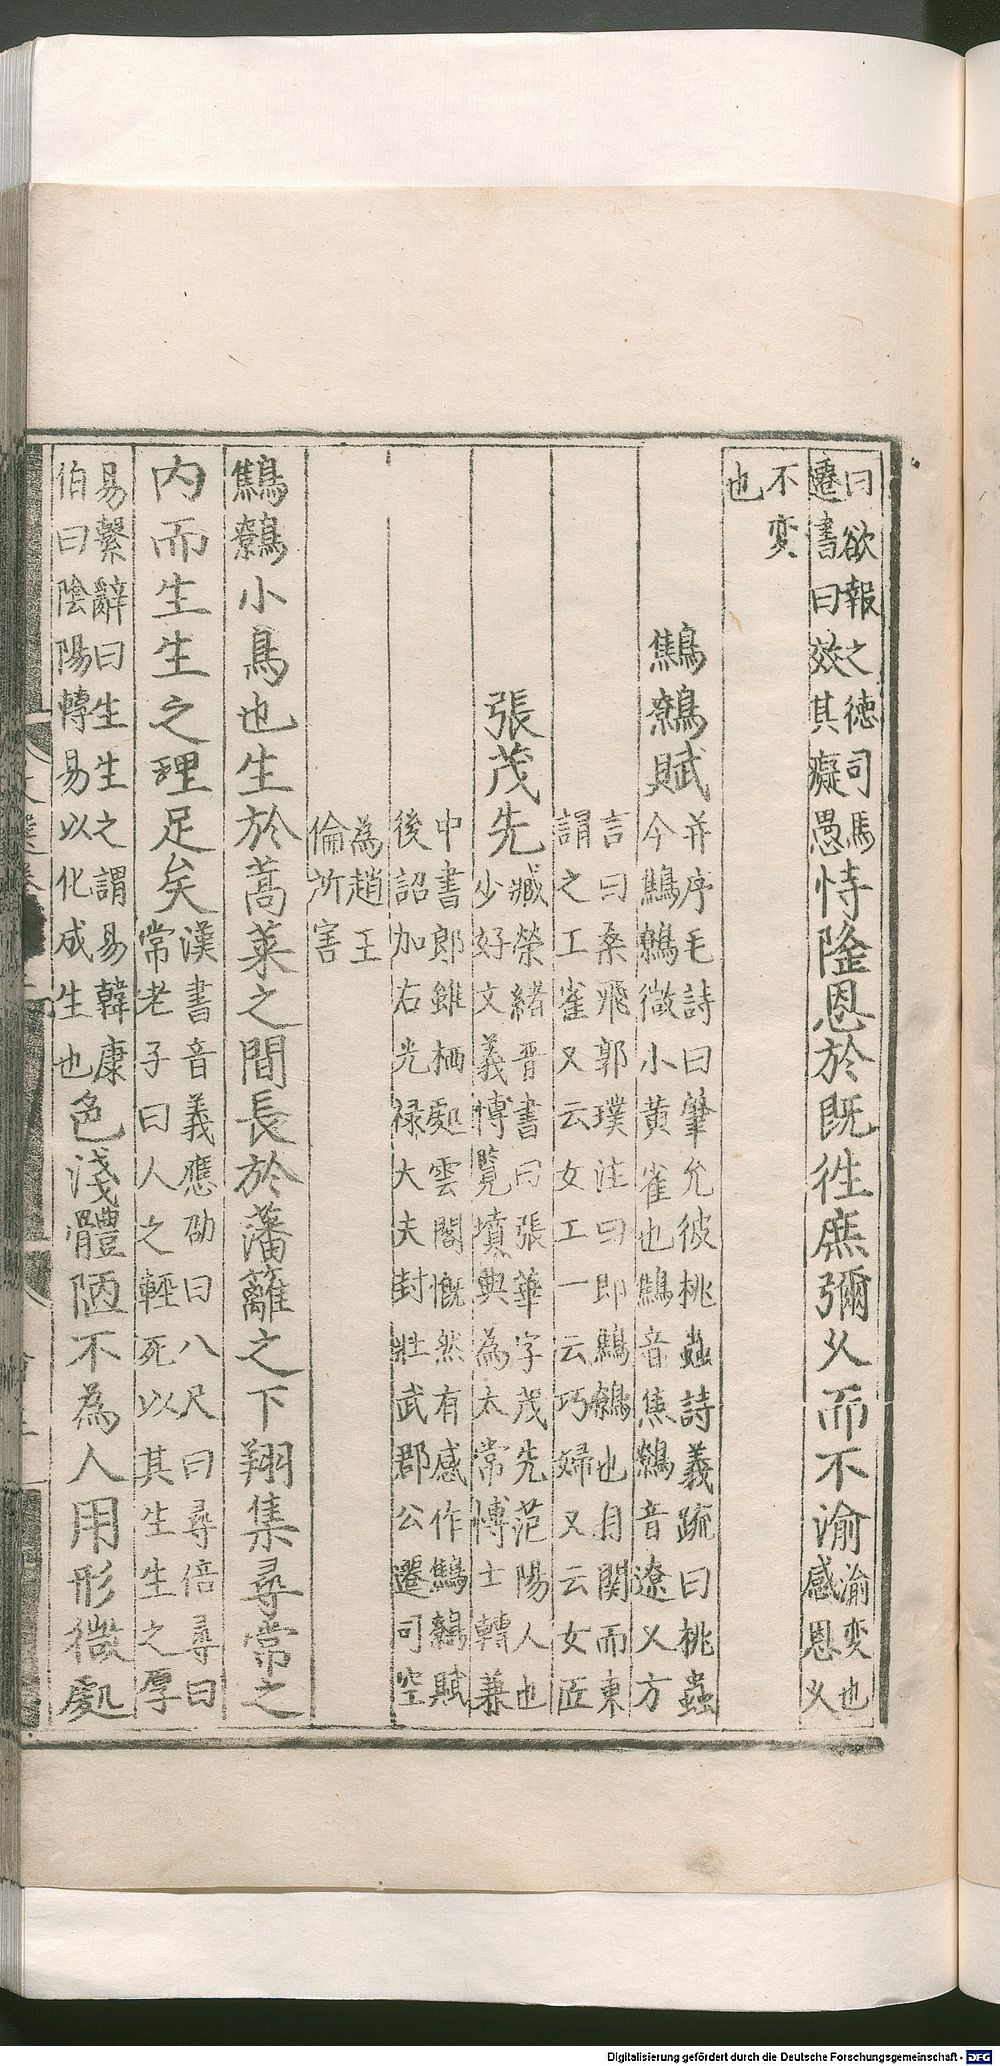 曰欲報之德司馬遷書曰效其癡愚恃隆恩於既往庶彌久而不渝渝変也感恩乂
不変也
鷦鷯賦并序毛詩曰肇允彼桃蟲詩義疏曰桃蟲今鷦鷯微小黄雀也鷦音焦鷯音遼乂方
言曰桑飛郭璞注曰即鷦鷯也自関而東謂之工雀又云女工一云巧婦又云女匠
張茂先臧榮緒晋書曰張華字茂先范陽人也少好文義博覽墳典為太常博士轉兼
中書郎雖栖處雲閣慨然有感作鷦鷯賦後詔加右光禄大夫封壯武郡公遷司空
為趙王倫所害
鷦鷯小鳥也生於蒿莱之間長於藩籬之下翔集尋常之
内而生生之理足矣漢書音義應劭曰八尺曰尋倍尋曰常老子曰人之輕死以其生生之厚
易繫辭曰生生之謂易韓康伯曰陰陽轉易以化成生也色淺體陋不為人用形微處
Digitalisierung gefördert durch die Deutsche Forschungsgemeinschaft - DFG